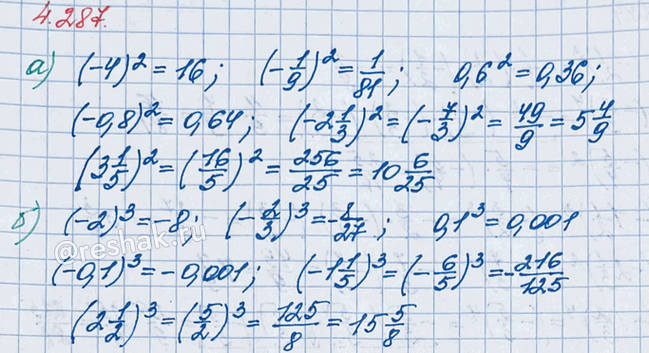 4.287.
а) (-4)² = 16; (-1/9)² = 1/81; 0,6² = 0,36;
(-0,8)² = 0,64; (-2 1/3)² = (-7/3)² = 49/9 = 5 4/9
(3 1/5)² = (16/5)² = 256/25 = 10 6/25
б) (-2)³ = -8; (-2/3)³ = -8/27; 0,1³ = 0,001
@reshak.ru
(-0,1)³ = -0,001; (-1 1/5)³ = (-6/5)³ = -216/125
(2 1/2)³ = (5/2)³ = 125/8 = 15 5/8